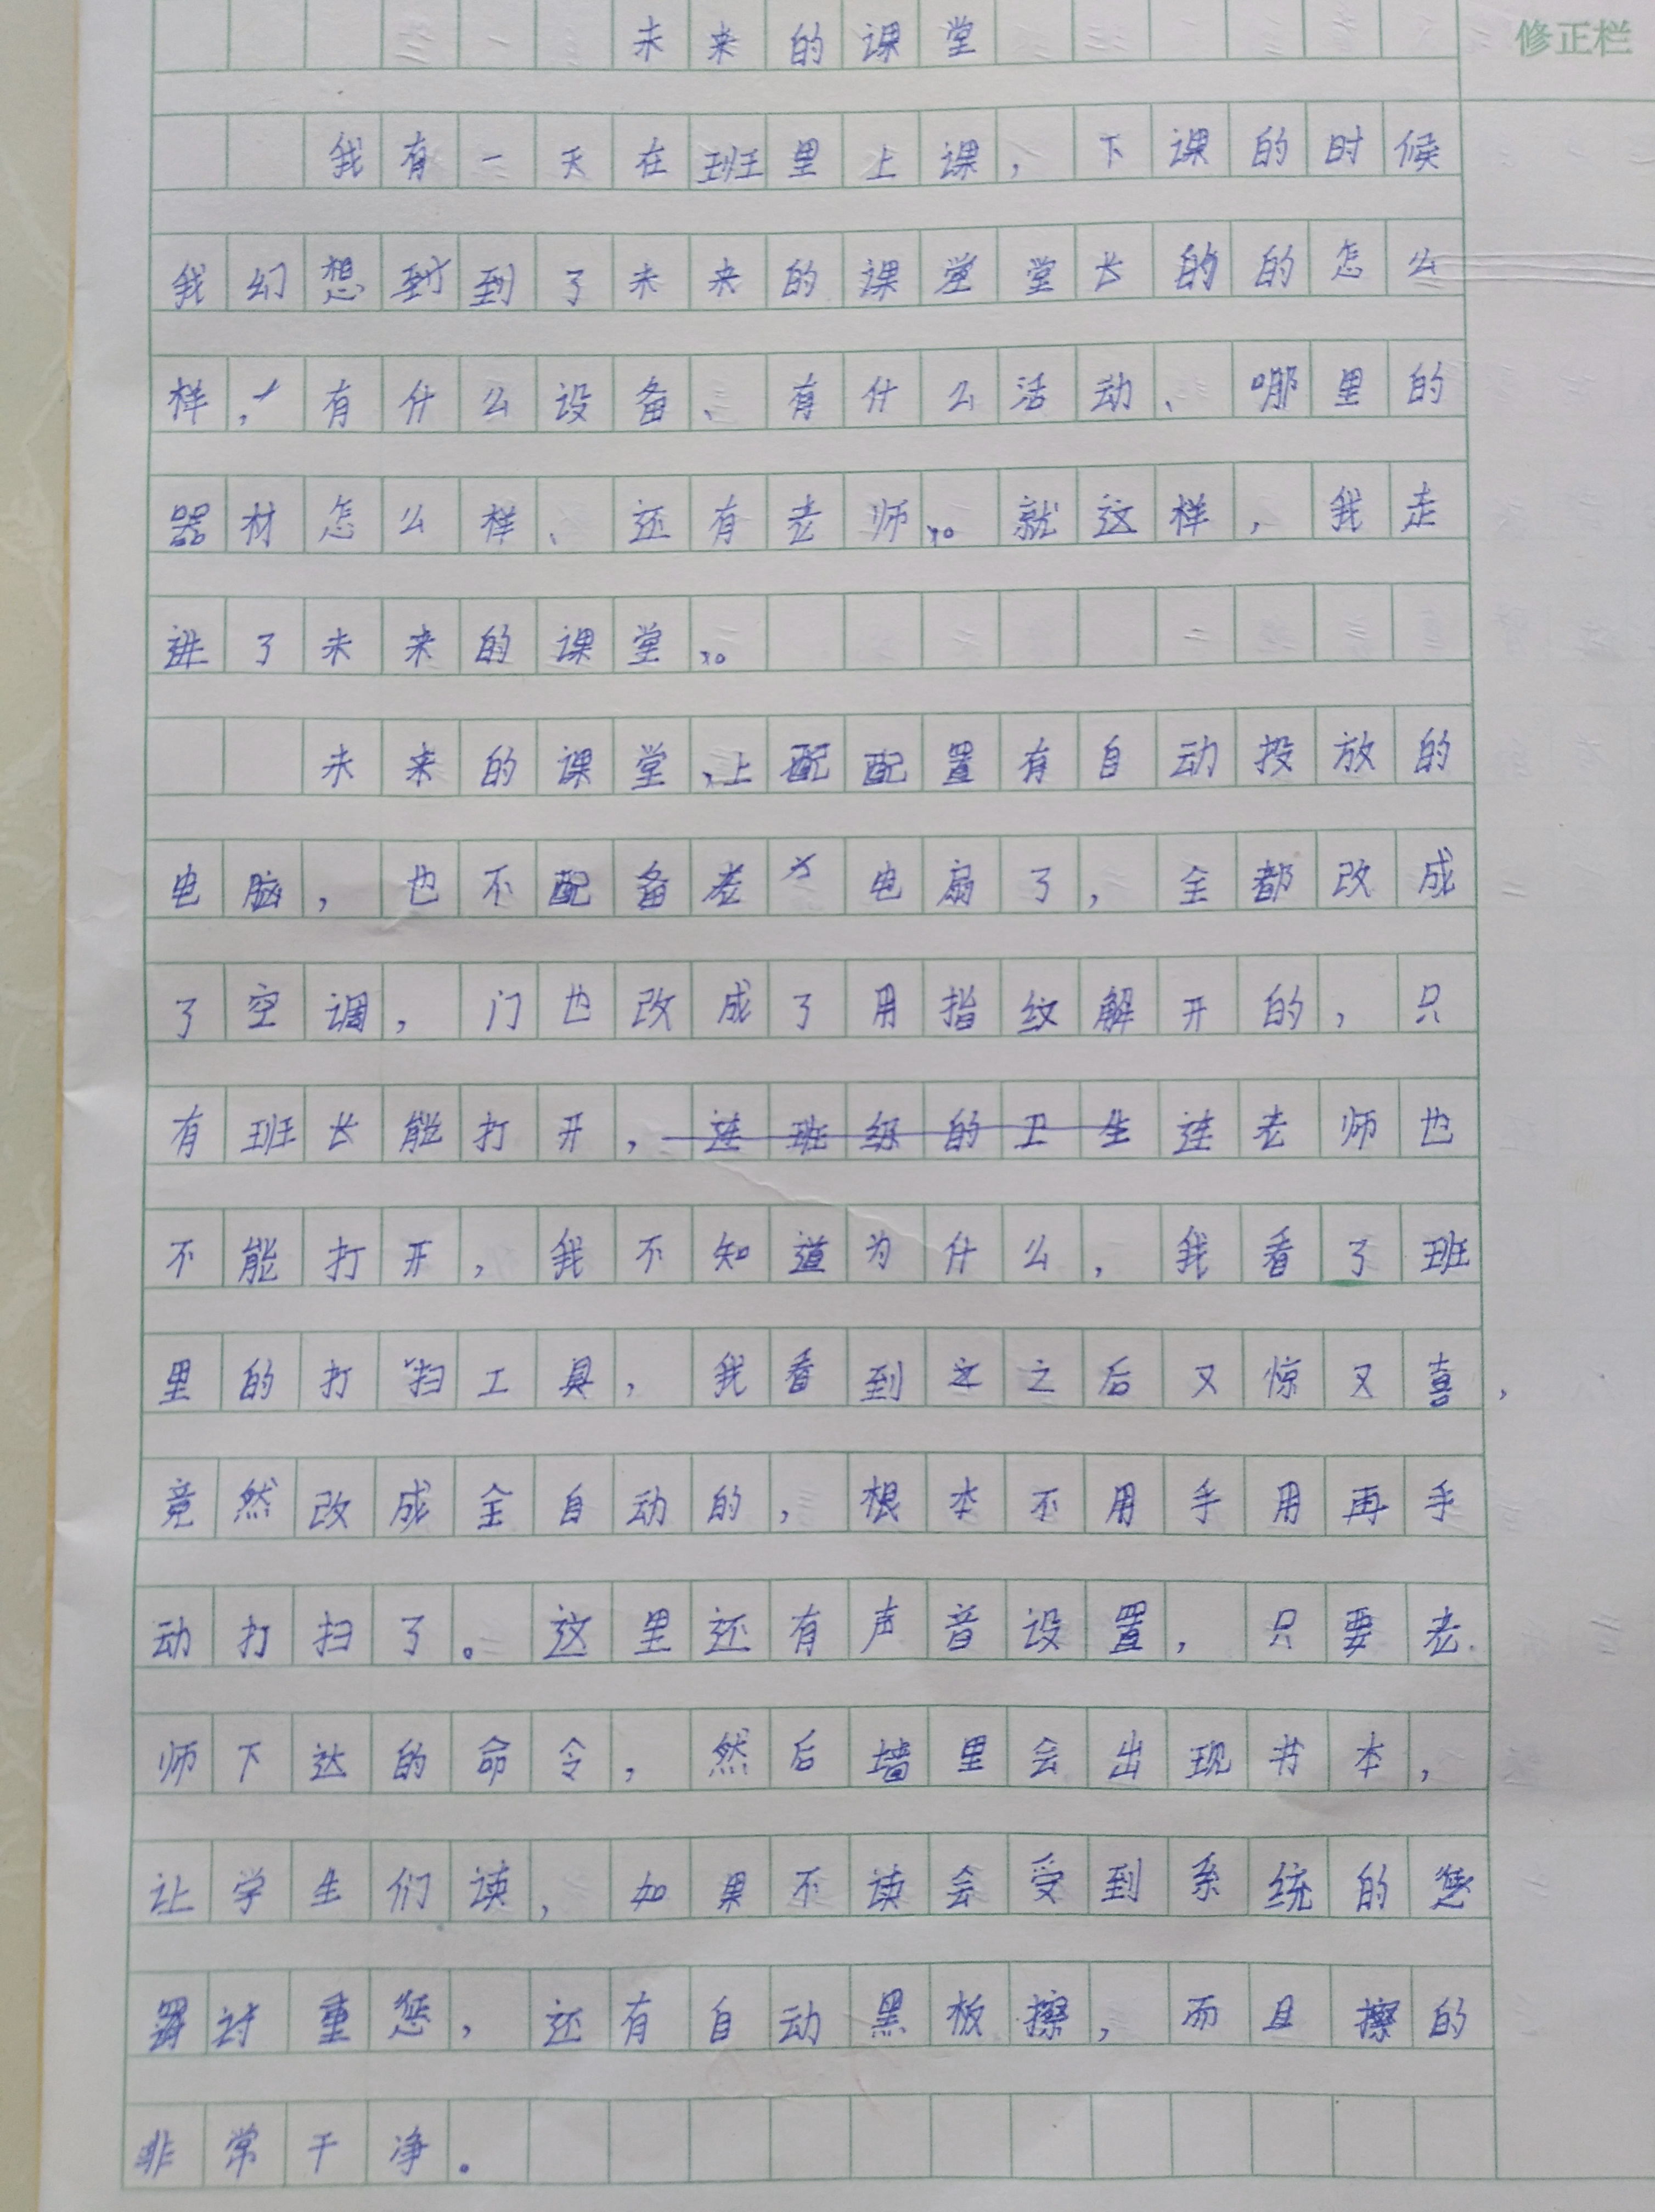 未来的课堂
修正栏
我有一天在班里上课，下课的时候
我幻想到到了未来的课堂堂长的的怎么
样，有什么设备、有什么活动、哪里的
器材怎么样、还有老师。就这样，我走
进了未来的课堂。
未来的课堂上配配置有自动投放的
电脑，也不配备老电扇了，全都改成
了空调，门也改成了用指纹解开的，只
有班长能打开，连班级的卫生连老师也
不能打开，我不知道为什么，我看了班
里的打扫工具，我看到之之后又惊又喜，
竟然改成全自动的，根本不用手用再手
动打扫了。这里还有声音设置，只要老
师下达的命令，然后墙里会出现书本，
让学生们读，如果不读会受到系统的惩
罚讨重惩，还有自动黑板擦，而且擦的
非常干净。